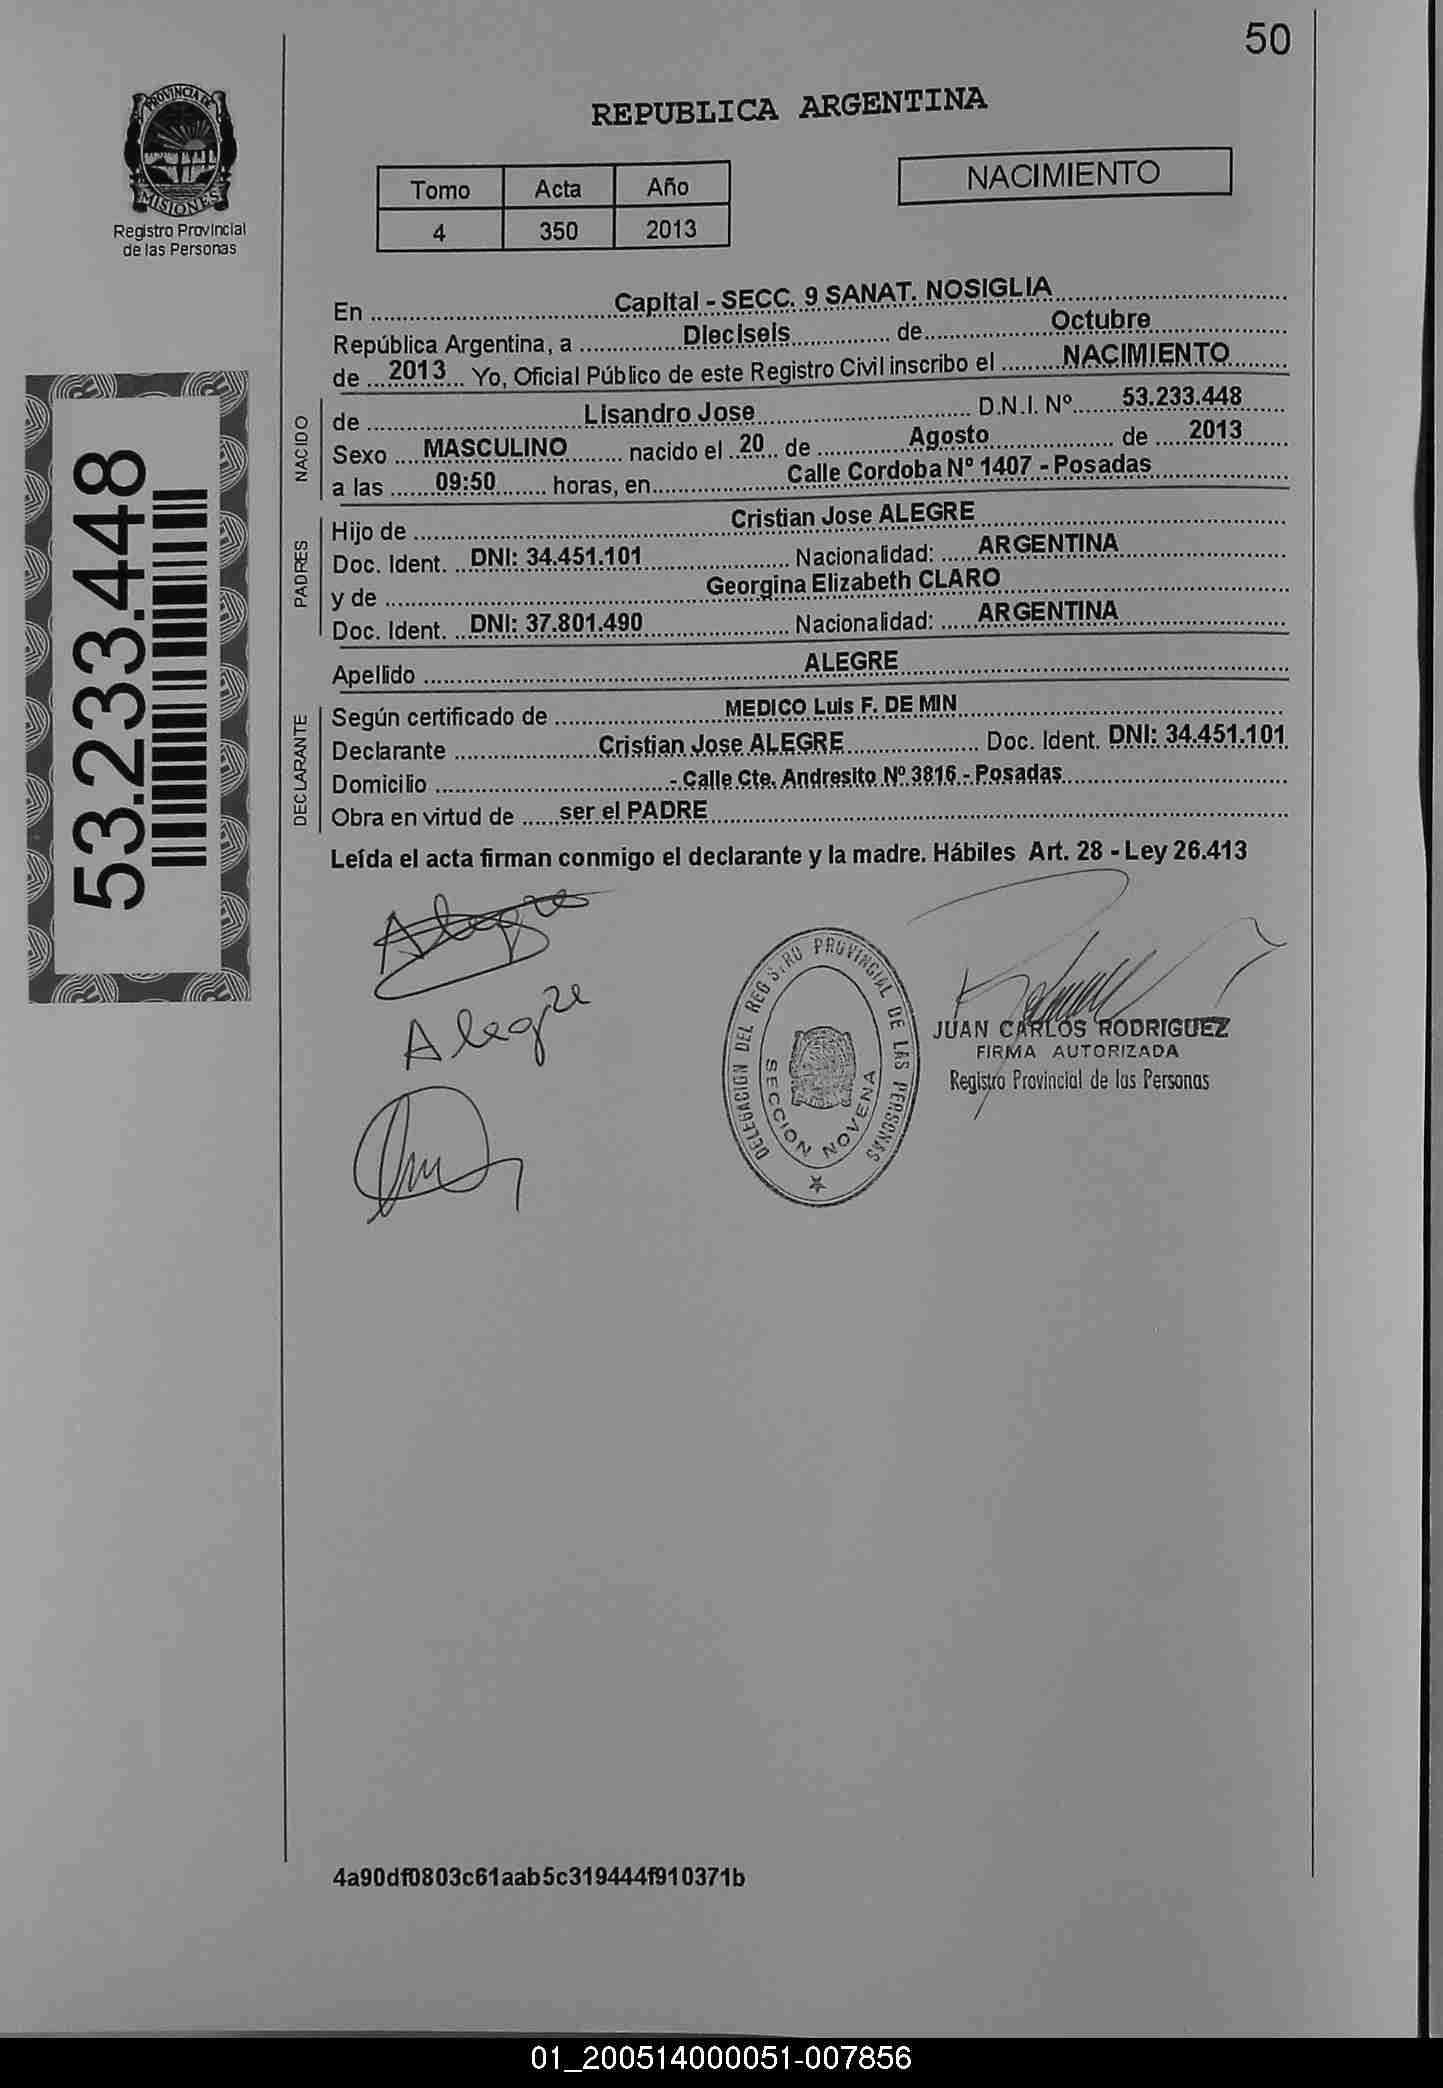 50
PROVINCIA DE
MISIONES
Registro Provincial
de las Personas
REPUBLICA ARGENTINA
Tomo Acta Año
4 350 2013
NACIMIENTO
En Capital - SECC. 9 SANAT. NOSIGLIA
República Argentina, a Dieciseis de Octubre
de 2013 Yo, Oficial Público de este Registro Civil inscribo el NACIMIENTO
NACIDO
de Lisandro Jose D.N.I. Nº 53.233.448
Sexo MASCULINO nacido el 20 de Agosto de 2013
a las 09:50 horas, en Calle Cordoba Nº 1407 - Posadas
PADRES
Hijo de Cristian Jose ALEGRE
Doc. Ident. DNI: 34.451.101 Nacionalidad: ARGENTINA
y de Georgina Elizabeth CLARO
Doc. Ident. DNI: 37.801.490 Nacionalidad: ARGENTINA
Apellido ALEGRE
DECLARANTE
Según certificado de MEDICO Luis F. DE MIN
Declarante Cristian Jose ALEGRE Doc. Ident. DNI: 34.451.101
Domicilio - Calle Cte. Andresito Nº 3816 - Posadas
Obra en virtud de ser el PADRE
Leída el acta firman conmigo el declarante y la madre. Hábiles Art. 28 - Ley 26.413
53.233.448
Alegre
Alegre
DELEGACION DEL REGISTRO PROVINCIAL DE LAS PERSONAS
SECCION NOVENA
JUAN CARLOS RODRIGUEZ
FIRMA AUTORIZADA
Registro Provincial de las Personas
4a90df0803c61aab5c319444f910371b
01_200514000051-007856